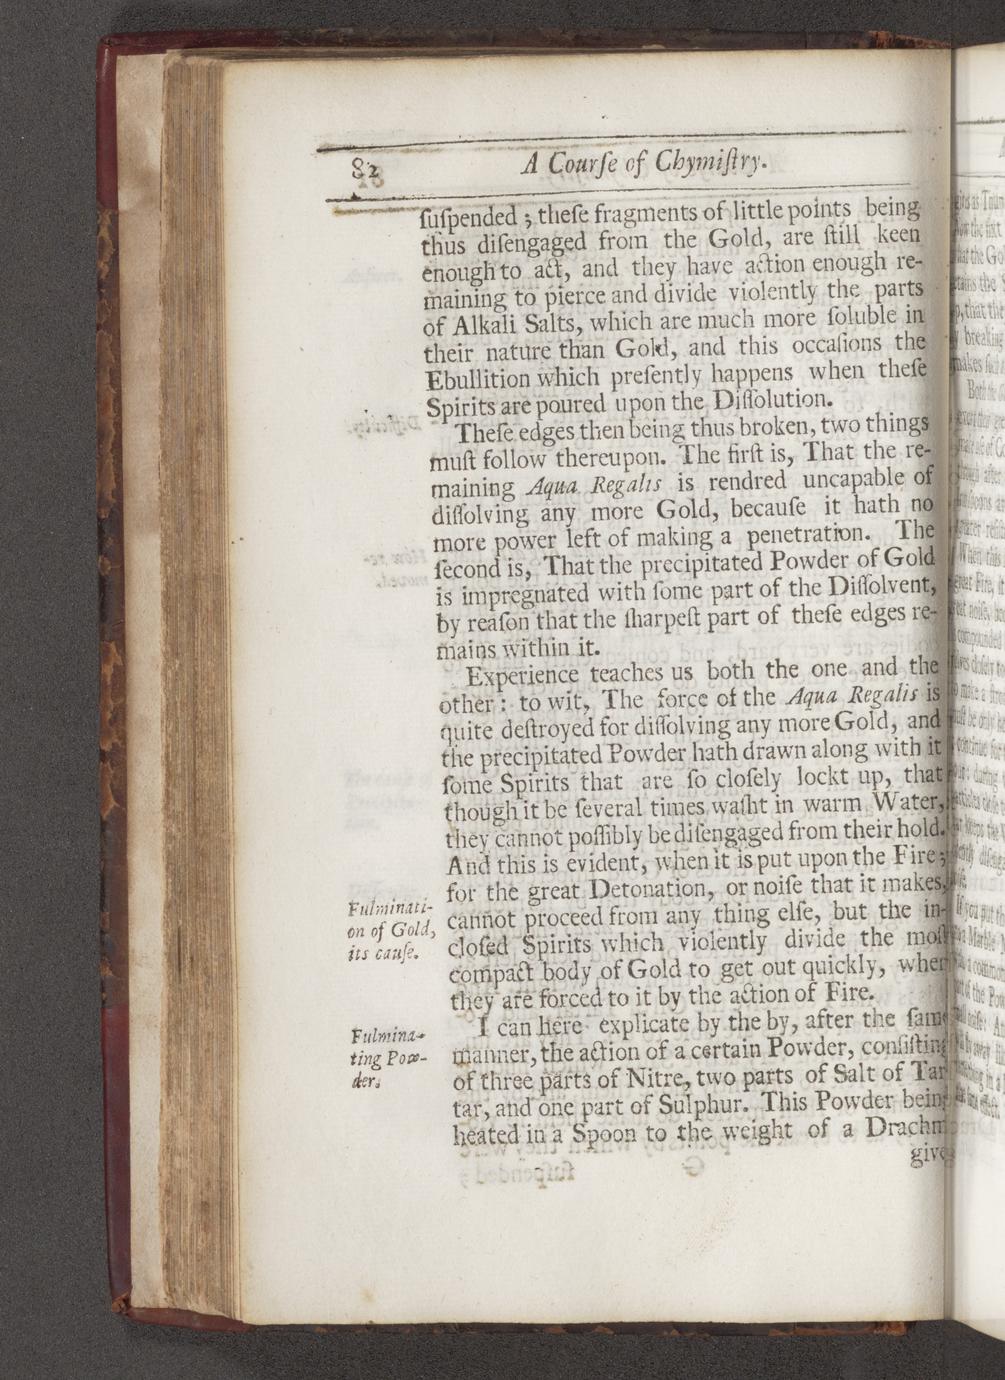 82
A Courſe of Chymiſtry.
ſuſpended ; theſe fragments of little points being
thus diſengaged from the Gold, are ſtill keen
enough to act, and they have action enough re-
maining to pierce and divide violently the parts
of Alkali Salts, which are much more ſoluble in
their nature than Gold, and this occaſions the
Ebullition which preſently happens when theſe
Spirits are poured upon the Diſſolution.
Theſe edges then being thus broken, two things
muſt follow thereupon. The firſt is, That the re-
maining Aqua Regalis is rendred uncapable of
diſſolving any more Gold, becauſe it hath no
more power left of making a penetration. The
ſecond is, That the precipitated Powder of Gold
is impregnated with ſome part of the Diſſolvent,
by reaſon that the ſharpeſt part of theſe edges re-
mains within it.
Experience teaches us both the one and the
other: to wit, The force of the Aqua Regalis is
quite deſtroyed for diſſolving any more Gold, and
the precipitated Powder hath drawn along with it
ſome Spirits that are ſo cloſely lockt up, that
though it be ſeveral times waſht in warm Water,
they cannot poſſibly be diſengaged from their hold.
And this is evident, when it is put upon the Fire;
for the great Detonation, or noiſe that it makes,
cannot proceed from any thing elſe, but the in-
cloſed Spirits which violently divide the moſt
compact body of Gold to get out quickly, when
they are forced to it by the action of Fire.
I can here explicate by the by, after the ſame
manner, the action of a certain Powder, conſiſting
of three parts of Nitre, two parts of Salt of Tar
tar, and one part of Sulphur. This Powder being
heated in a Spoon to the weight of a Drachm
give
Fulminati-
on of Gold,
its cauſe.
Fulmina-
ting Pow-
der.